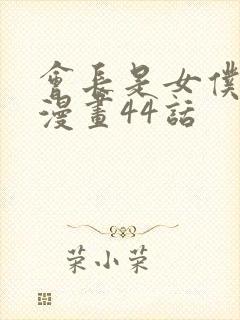 會長是女僕
漫畫44話
菜小菜